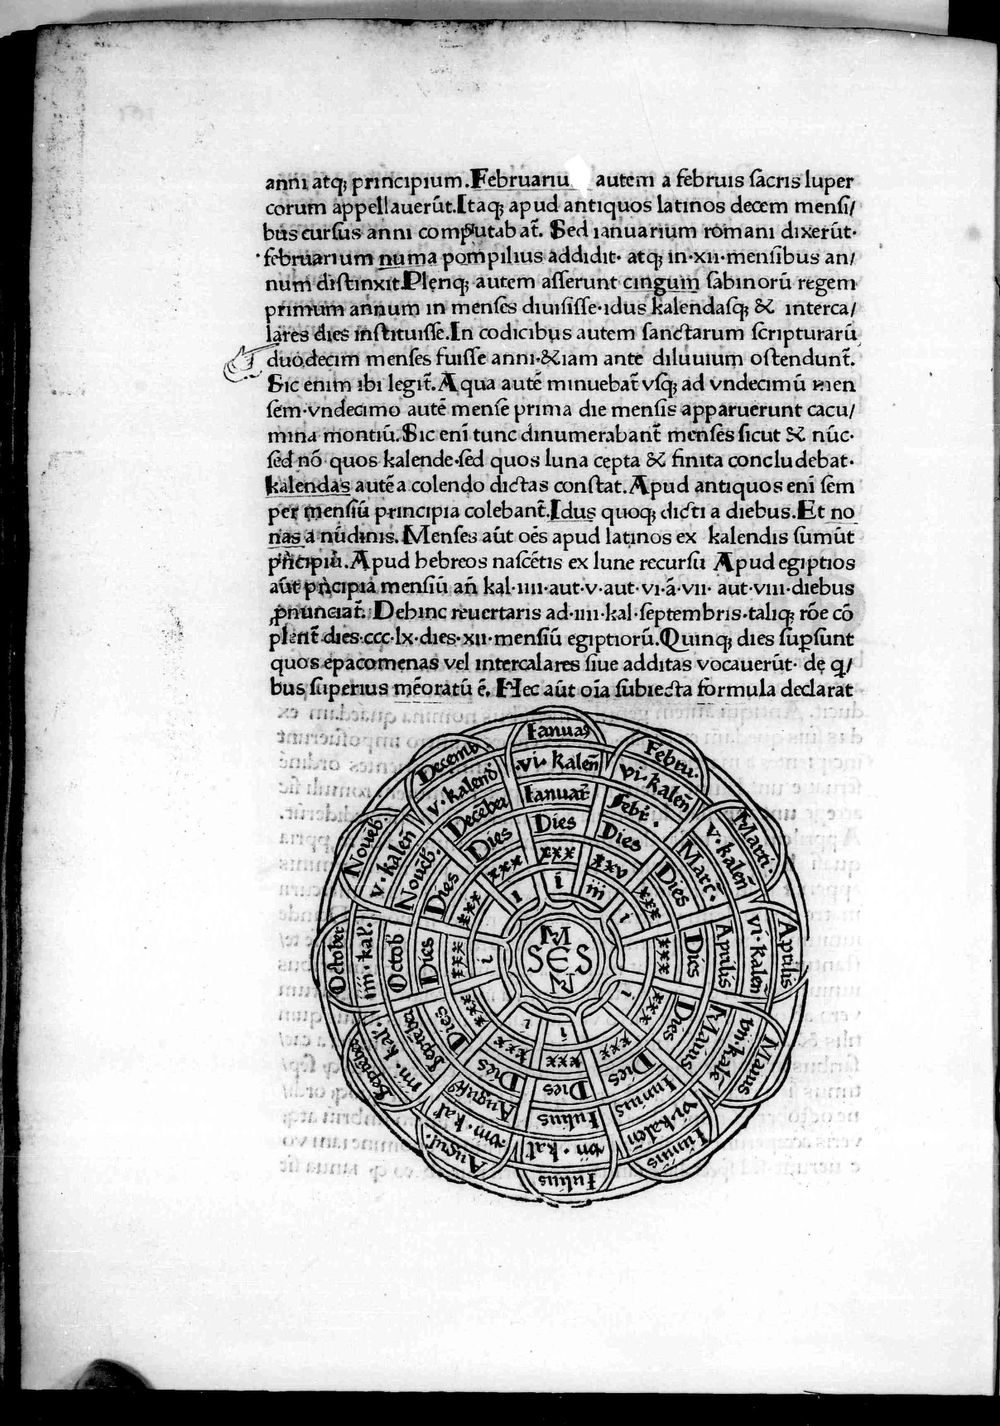 anni atqꝫ principium.Februariu autem a februis ſacris luper
corum appellauerūt.Itaqꝫ apud antiquos latinos decem menſi/
bus curſus anni computabat̄. Sed ianuarium romani dixerūt·
februarium numa pompilius addidit· atqꝫ in·xii·menſibus an/
num diſtinxit.Pleriqꝫ autem aſſerunt cingum ſabinorū regem
primum annum in menſes diuiſiſſe·idus kalendaſqꝫ & interca/
lares dies inſtituiſſe.In codicibus autem ſanctarum ſcripturarū
duodecim menſes fuiſſe anni·&iam ante diluuium oſtendunt̄.
Sic enim ibi legit̄.Aqua autē minuebat̄ vſqꝫ ad vndecimū men
ſem·vndecimo autē menſe prima die menſis apparuerunt cacu/
mina montiū.Sic eni tunc dinumerabant̄ menſes ſicut & nūc·
ſed nō quos kalende·ſed quos luna cepta & finita concludebat·
kalendas autē a colendo dictas conſtat.Apud antiquos eni ſem
per menſiū principia colebant̄.Idus quoqꝫ dicti a diebus.Et no
nas a nūdinis.Menſes aūt oēs apud latinos ex kalendis ſumūt
prīcipiū.Apud hebreos naſcētis ex lune recurſu Apud egiptios
aūt prīcipia menſiū añ kal·iiii·aut·v·aut·vi·ā·vii· aut·viii·diebus
ꝓnunciat̄. Debinc reuertaris ad·iiii·kal·ſeptembris·taliqꝫ rōe cō
plent̄ dies·ccc·lx·dies·xii·menſiū egiptiorū.Quinqꝫ dies suꝑſunt
quos epacomenas vel intercalares ſiue additas vocauerūt· de q/
bus ſuperius mēoratū ē. Hec aūt oīa ſubiecta formula declarat
Ianuaȝ
·vi·kaleñ
Ianuar̄
Dies
xxx
i
Febru·
vi·kaleñ
febr̄·
Dies
xxv
iii
Marti·
v·kaleñ
Marc̄·
Dies
xxx
i
Aprilis
vi·kaleñ
Aprilis
Dies
xxx
Maius
viii·kalē
Maius
Dies
xxx
i
Iunius
vi·kaleñ
Iunius
Dies
xxx
Iulius
vii·kal̄
Iulius
Dies
xxx
i
Auguſ·
viii·kal
Auguſt
Dies
xxx
i
Septēber
iiii·kal·
Septēber
Dies
xxx
October
iiii·kal̄·
Octob̄
Dies
xxx
i
Nouēb̄
v·kaleñ
Nouēb̄·
Dies
xxx
Decemb
v·kalend̄
Decēber
Dies
xxx
i
M
SES
N